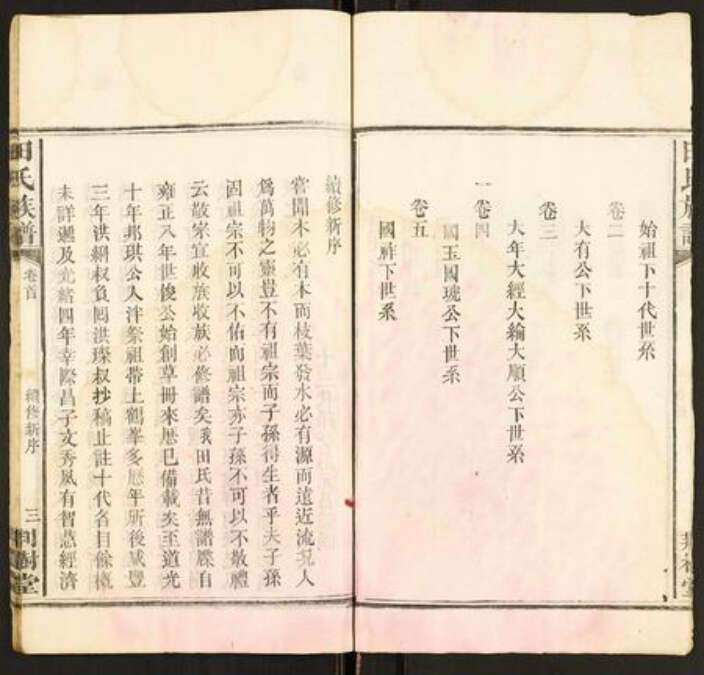 始祖下十代世系
卷二
大有公下世系
卷三
大年大經大綸大順公下世系
卷四
國玉國琥公下世系
卷五
國祥下世系
續修新序
嘗聞木必有本而枝葉發水必有源而遠近流况人
爲萬物之靈豈不有祖宗而子孫得生者乎夫子孫
因祖宗不可以不佑而祖宗亦子孫不可以不敬禮
云敬宗宜收族收族必修譜矣我田氏昔無譜牒自
雍正八年世俊公始創草冊來歷已備載矣至道光
十年邦琪公入泮祭祖帶上鶴峯多歷年所後咸豐
三年洪綱叔負囘洪璨叔抄稿止註十代各自條
未詳遡及光緒四年幸際昌子文秀夙有智慧經濟
田氏族譜
卷首
續修新序
三
堂